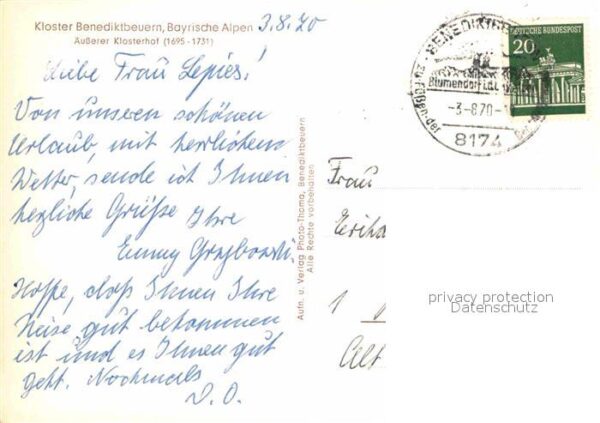 Kloster Benediktbeuern, Bayrische Alpen
Äußerer Klosterhof (1695-1731)
3.8.70
Liebe Frau Lepies!
Von unseren schönen
Urlaub, mit herrlichem
Wetter, sende ich Ihnen
herzliche Grüße
Ihre
Emmy Grzybowski.
Hoffe, daß Ihnen Ihre
Reise gut bekommen
ist und es Ihnen gut
geht. Nochmals
D. O.
Aufn. u. Verlag Photo-Thoma, Benediktbeuern
Alle Rechte vorbehalten
DEUTSCHE BUNDESPOST
20
Blumendorf
-3-8.70-1
8174
Frau
Erika
1
privacy protection
Datenschutz